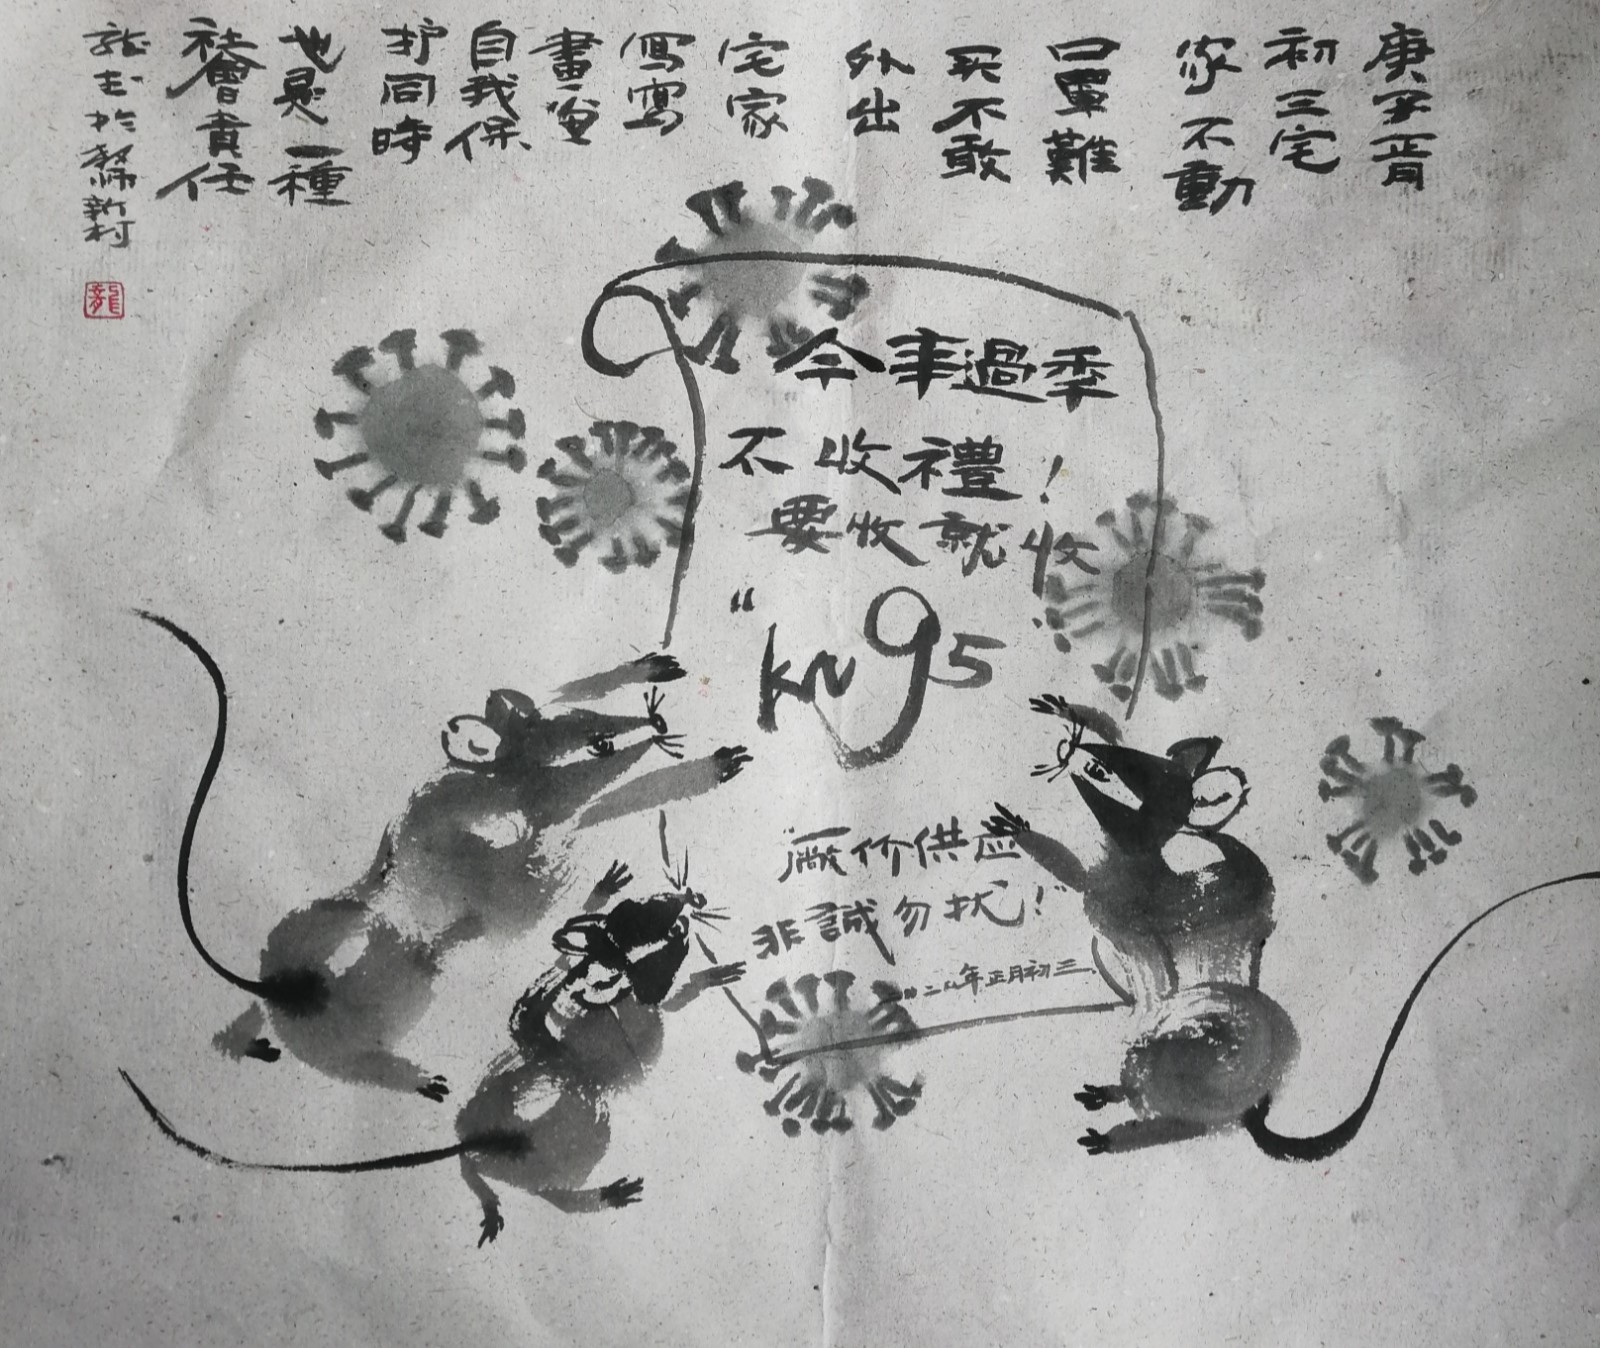 庚子正月
初三宅
家不動
口罩難
买不敢
外出
宅家
寫寫
畫畫
自我保
护同時
也是一種
社會責任
於教师新村
龍
今年過季
不收禮！
要收就收
“kn95
廠价供应
非誠勿扰！”
二〇二〇年正月初三.